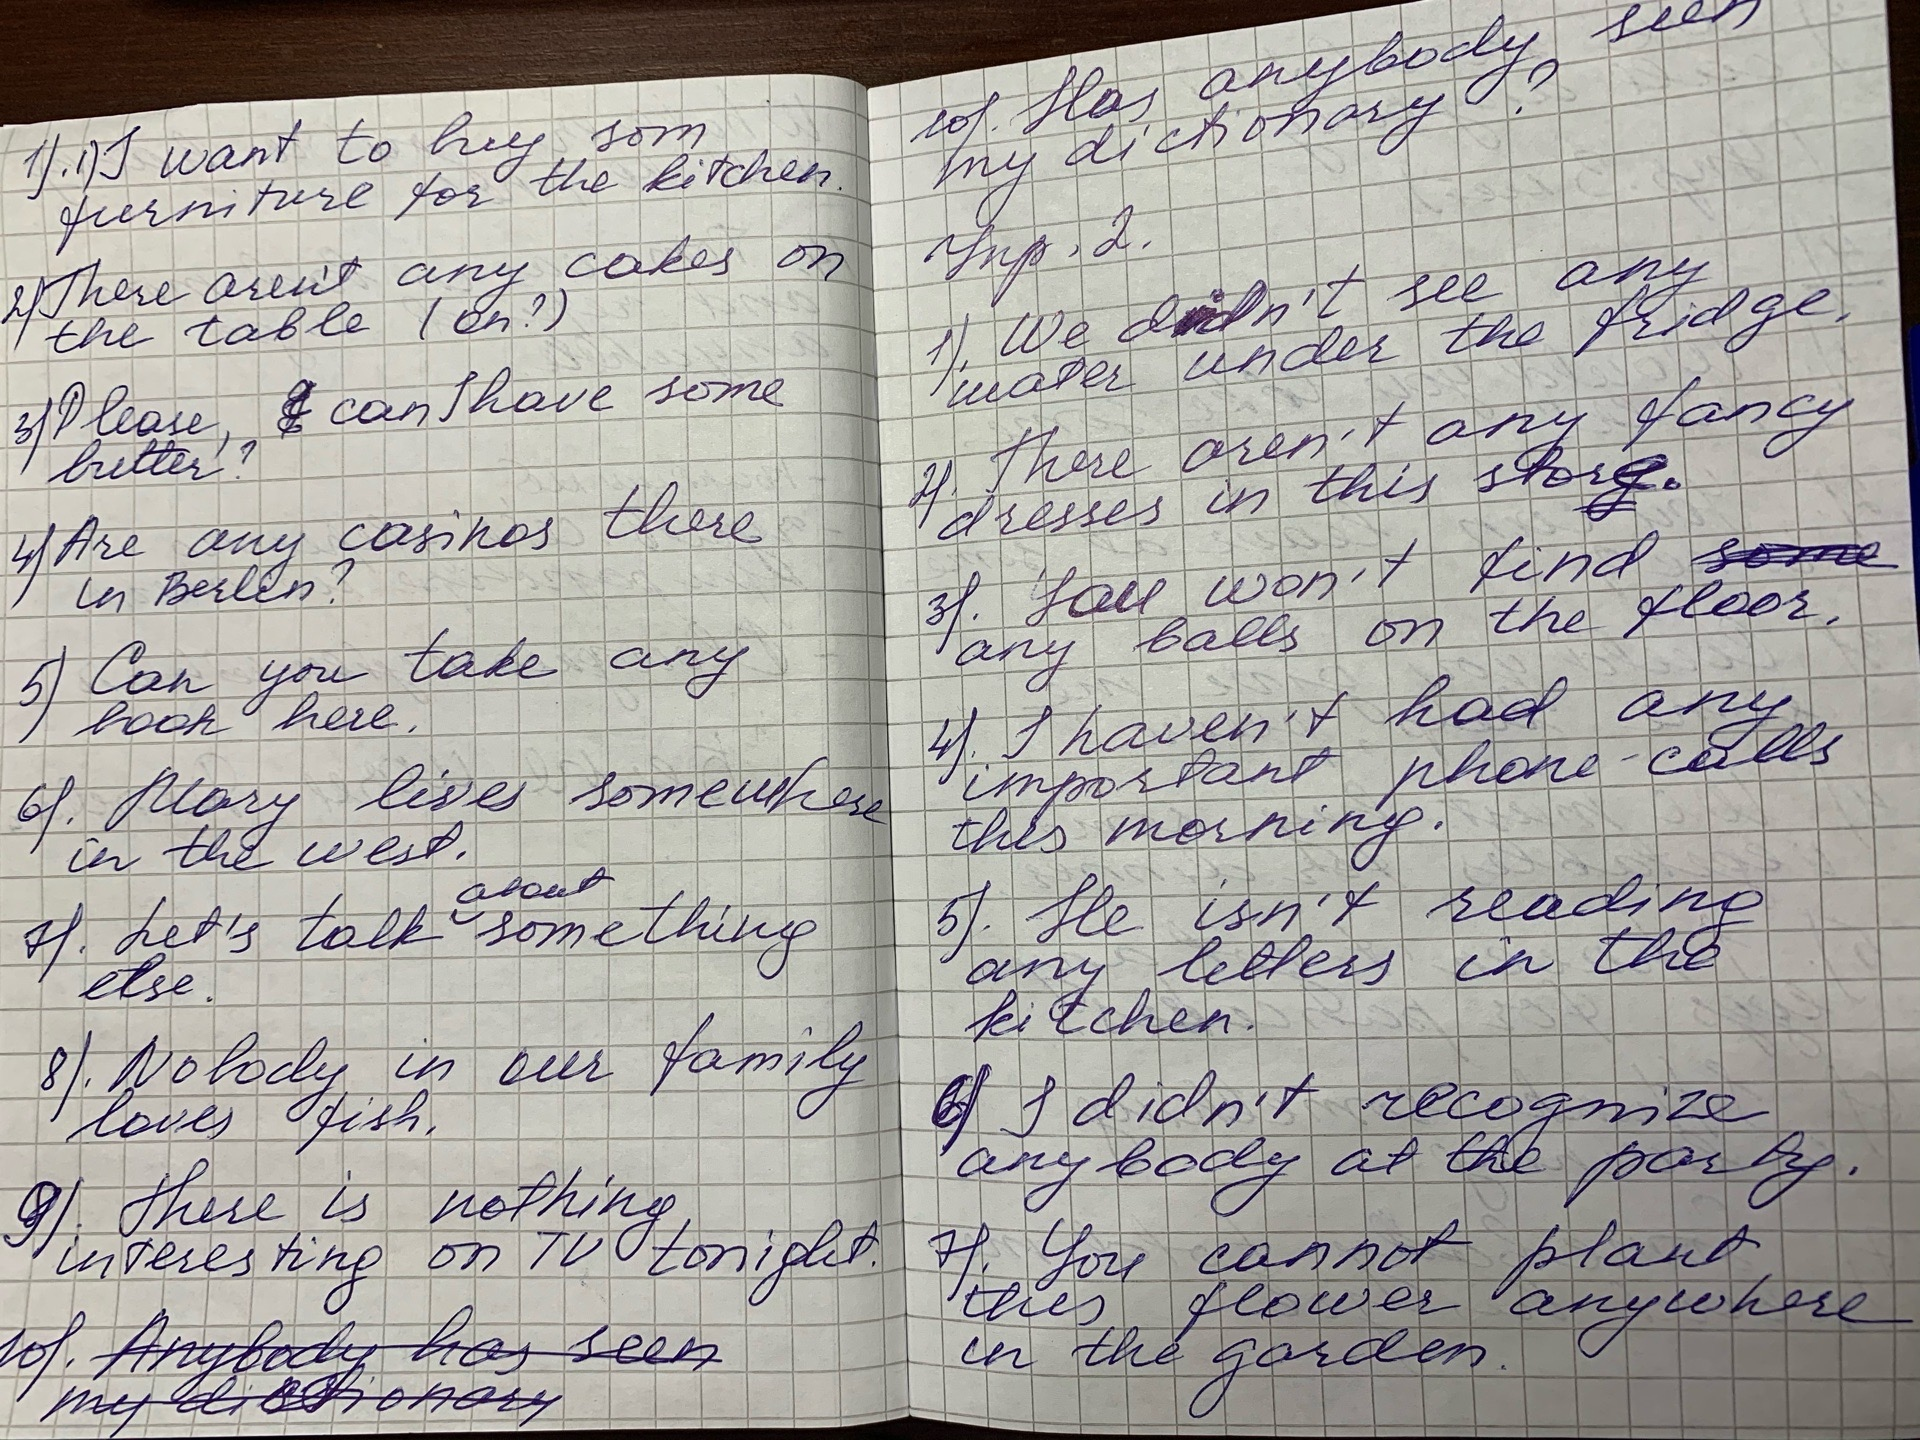 1). 1) I want to buy som
furniture for the kitchen.
2) There aren't any cakes on
the table (on?)
3) Please, can I have some
butter?
4) Are any casinos there
in Berlin?
5) Can you take any
book here.
6). Mary lives somewhere
in the west.
about
7). Let's talk something
else.
8). Nobody in our family
loves fish.
9). There is nothing
interesting on TV tonight.
10). Anybody has seen
my dictionary
10). Has anybody seen
my dictionary?
Упр. 2.
1). We didn't see any
water under the fridge.
2). There aren't any fancy
dresses in this store.
3). You won't find some
any balls on the floor.
4). I haven't had any
important phone-calls
this morning.
5). He isn't reading
any letters in the
kitchen.
6) I didn't recognize
anybody at the party.
7). You cannot plant
this flower anywhere
in the garden.